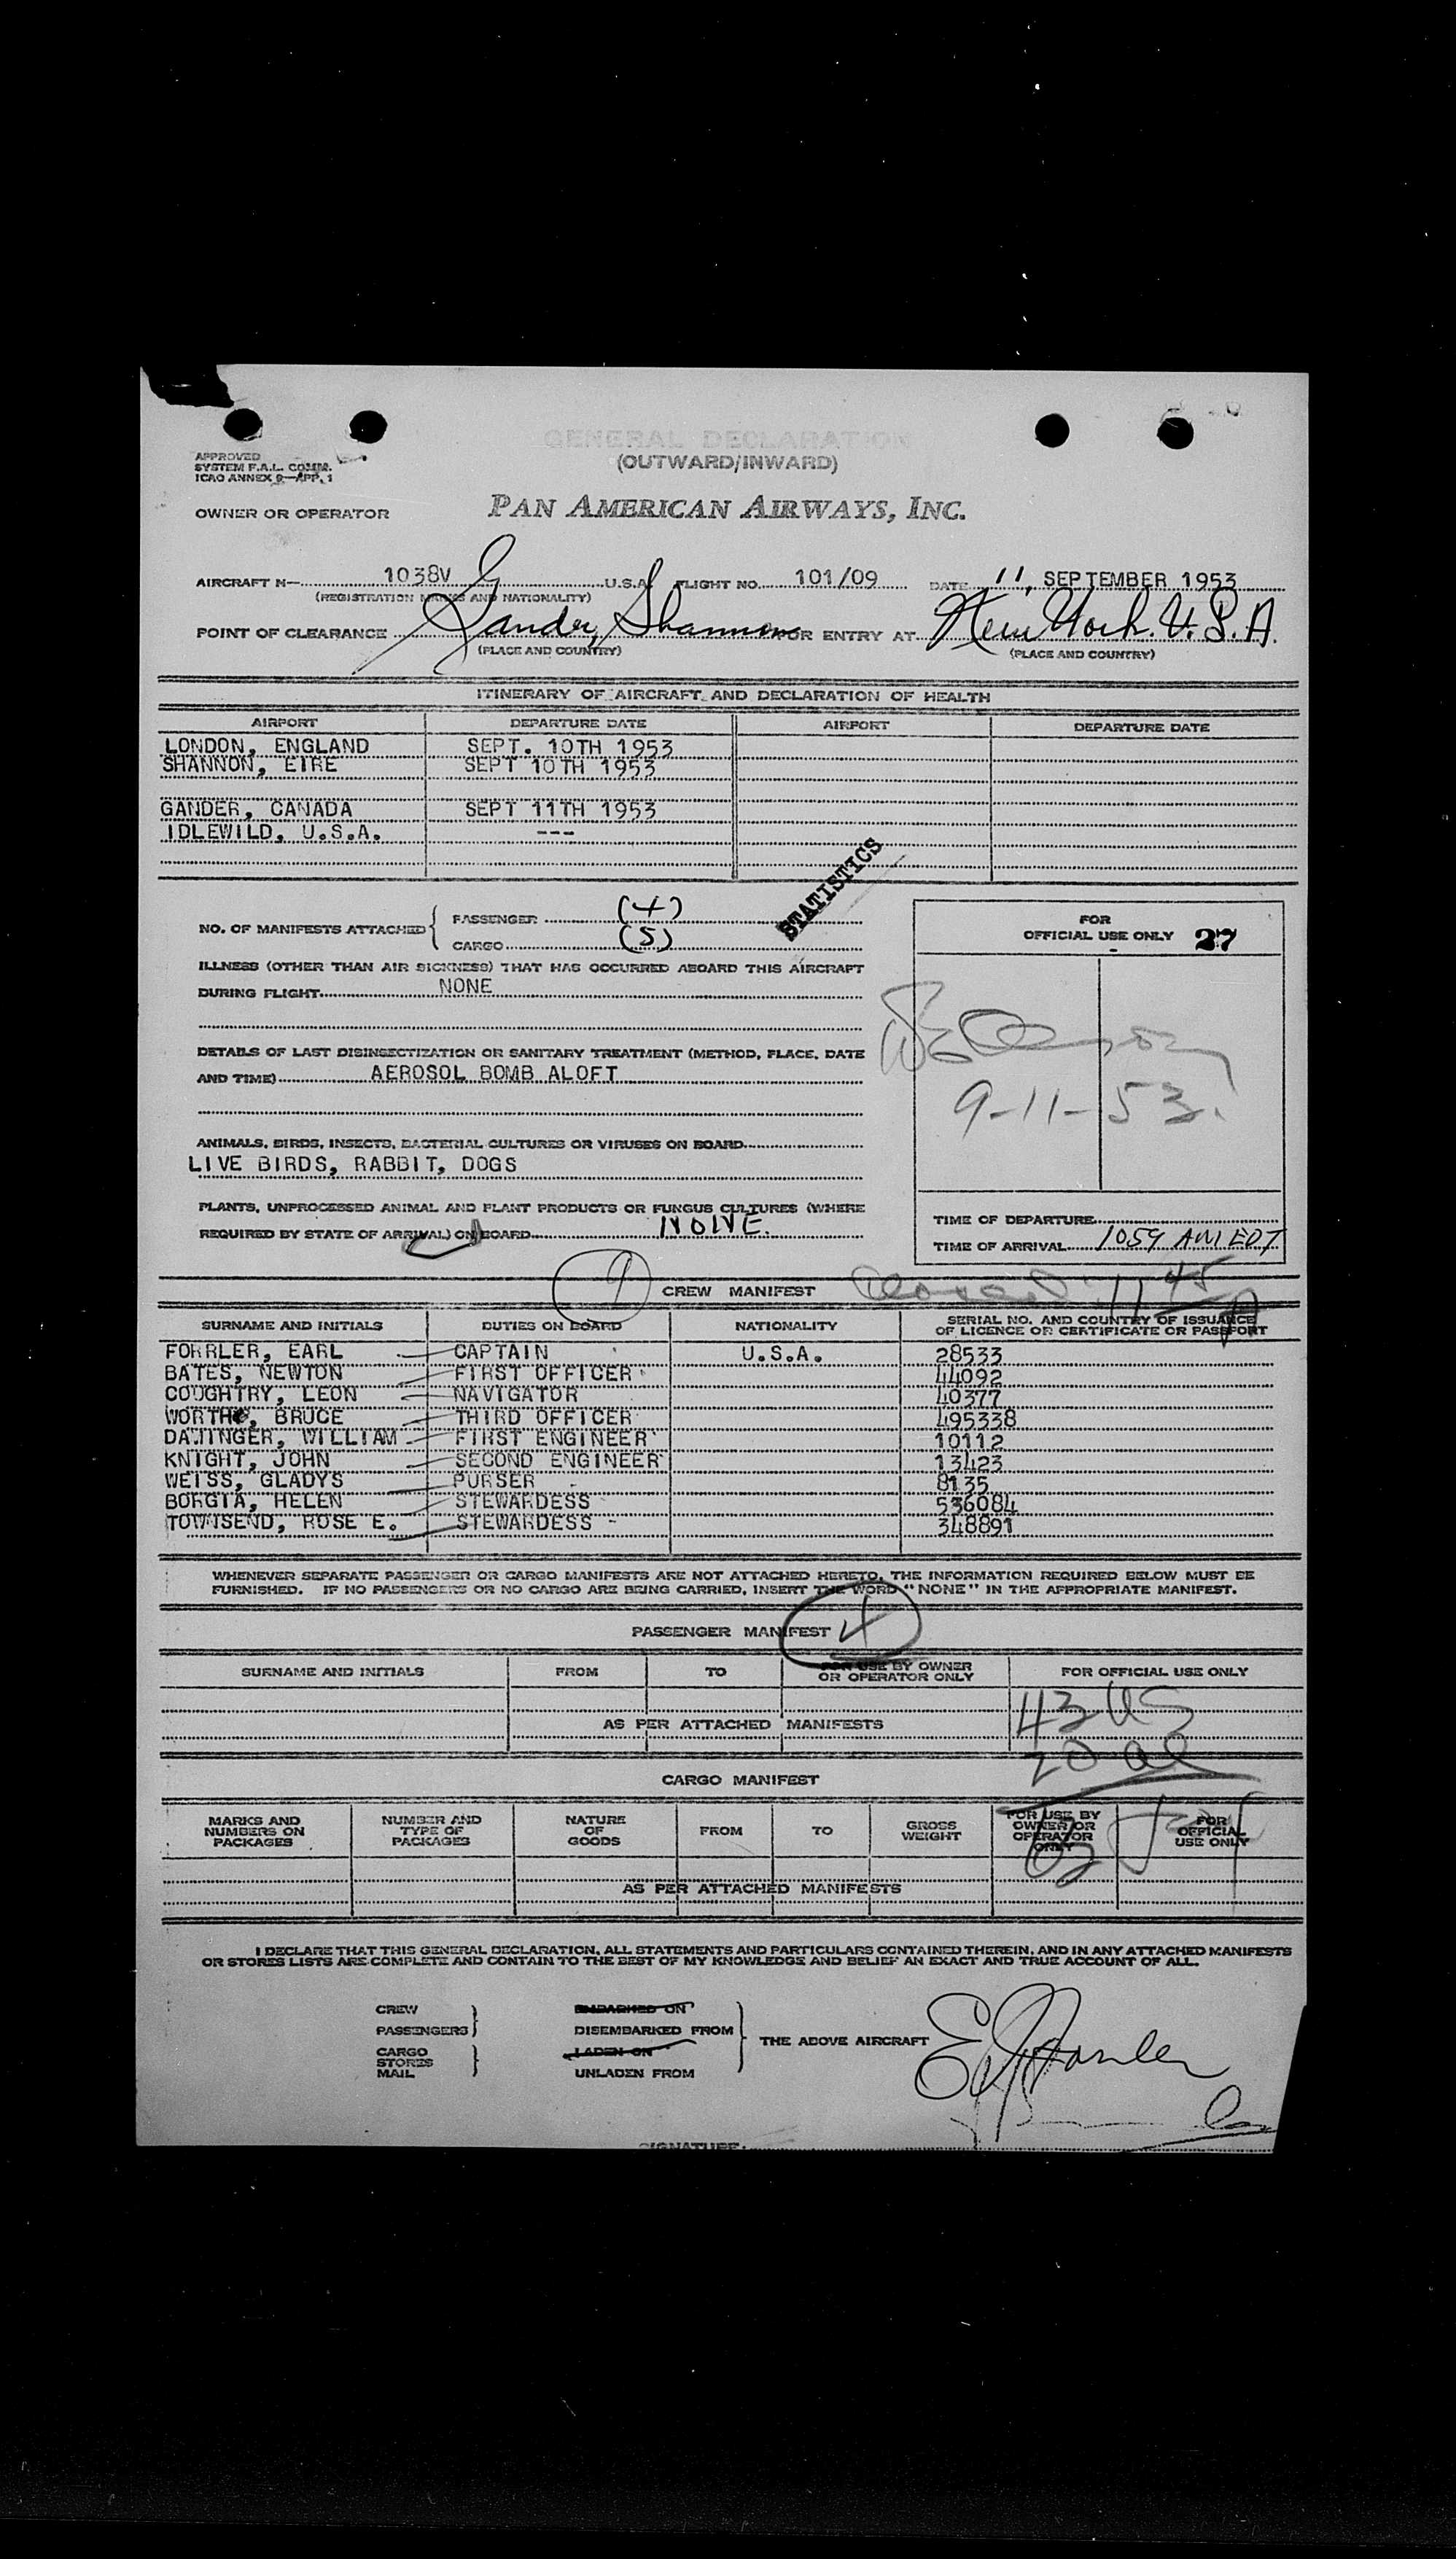 GENERAL DECLARATION
(OUTWARD/INWARD)
APPROVED
SYSTEM F.A.L. COMM.
ICAO ANNEX 9—APP. 1
OWNER OR OPERATOR PAN AMERICAN AIRWAYS, INC.
AIRCRAFT N— 1038V U.S.A. FLIGHT NO. 101/09 DATE 11, SEPTEMBER 1953
(REGISTRATION MARKS AND NATIONALITY)
POINT OF CLEARANCE Gander, Shannon FOR ENTRY AT New York. U.S.A.
(PLACE AND COUNTRY) (PLACE AND COUNTRY)
ITINERARY OF AIRCRAFT AND DECLARATION OF HEALTH
AIRPORT DEPARTURE DATE AIRPORT DEPARTURE DATE
LONDON, ENGLAND SEPT. 10TH 1953
SHANNON, EIRE SEPT 10TH 1953
GANDER, CANADA SEPT 11TH 1953
IDLEWILD, U.S.A. ---
STATISTICS
NO. OF MANIFESTS ATTACHED { PASSENGER (4)
CARGO (5)
ILLNESS (OTHER THAN AIR SICKNESS) THAT HAS OCCURRED ABOARD THIS AIRCRAFT
DURING FLIGHT NONE
DETAILS OF LAST DISINSECTIZATION OR SANITARY TREATMENT (METHOD, PLACE, DATE
AND TIME) AEROSOL BOMB ALOFT
ANIMALS, BIRDS, INSECTS, BACTERIAL CULTURES OR VIRUSES ON BOARD
LIVE BIRDS, RABBIT, DOGS
PLANTS, UNPROCESSED ANIMAL AND PLANT PRODUCTS OR FUNGUS CULTURES (WHERE
REQUIRED BY STATE OF ARRIVAL) ON BOARD NONE.
FOR
OFFICIAL USE ONLY 27
9-11-53.
TIME OF DEPARTURE
TIME OF ARRIVAL 1059 AM EDT
9 CREW MANIFEST 11 45
SURNAME AND INITIALS DUTIES ON BOARD NATIONALITY SERIAL NO. AND COUNTRY OF ISSUANCE
OF LICENCE OR CERTIFICATE OR PASSPORT
FORRLER, EARL CAPTAIN U.S.A. 28533
BATES, NEWTON FIRST OFFICER 44092
COUGHTRY, LEON NAVIGATOR 40377
WORTHE, BRUCE THIRD OFFICER 495338
WILLIAM FIRST ENGINEER 10112
KNIGHT, JOHN SECOND ENGINEER 13423
WEISS, GLADYS PURSER 8135
BORGIA, HELEN STEWARDESS 536084
TOWNSEND, ROSE E. STEWARDESS 348891
WHENEVER SEPARATE PASSENGER OR CARGO MANIFESTS ARE NOT ATTACHED HERETO, THE INFORMATION REQUIRED BELOW MUST BE
FURNISHED. IF NO PASSENGERS OR NO CARGO ARE BEING CARRIED, INSERT THE WORD "NONE" IN THE APPROPRIATE MANIFEST.
PASSENGER MANIFEST 4
SURNAME AND INITIALS FROM TO FOR USE BY OWNER
OR OPERATOR ONLY FOR OFFICIAL USE ONLY
43 US
AS PER ATTACHED MANIFESTS
20 al
CARGO MANIFEST
MARKS AND
NUMBERS ON
PACKAGES NUMBER AND
TYPE OF
PACKAGES NATURE
OF
GOODS FROM TO GROSS
WEIGHT FOR USE BY
OWNER OR
OPERATOR
ONLY FOR
OFFICIAL
USE ONLY
63
AS PER ATTACHED MANIFESTS
I DECLARE THAT THIS GENERAL DECLARATION, ALL STATEMENTS AND PARTICULARS CONTAINED THEREIN, AND IN ANY ATTACHED MANIFESTS
OR STORES LISTS ARE COMPLETE AND CONTAIN TO THE BEST OF MY KNOWLEDGE AND BELIEF AN EXACT AND TRUE ACCOUNT OF ALL.
CREW EMBARKED ON
PASSENGERS DISEMBARKED FROM
THE ABOVE AIRCRAFT
CARGO LADEN ON
STORES
MAIL UNLADEN FROM
SIGNATURE: